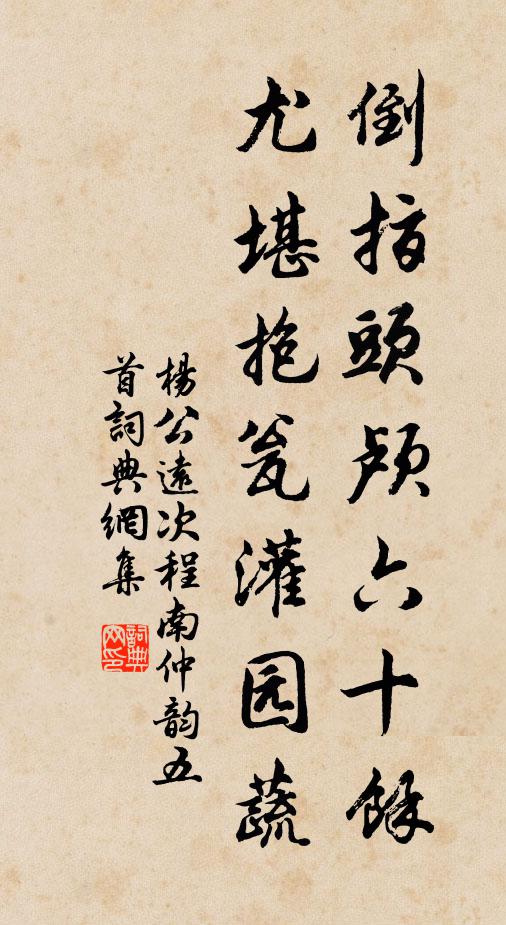 倒指頭颅六十餘
尤堪抱瓮灌园蔬
楊公遠次程南仲韵五
首詞典網集
詞典
网印